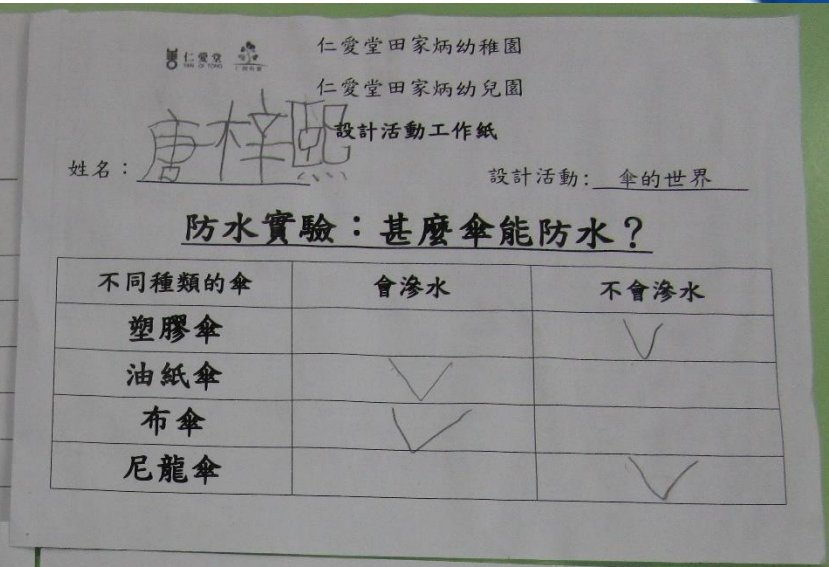 仁愛堂
YAN OI TONG
仁愛堂田家炳幼稚園
仁愛堂田家炳幼兒園
設計活動工作紙
姓名：唐梓熙
設計活動：傘的世界
防水實驗：甚麼傘能防水？
不同種類的傘 會滲水 不會滲水
塑膠傘
油紙傘
布傘
尼龍傘